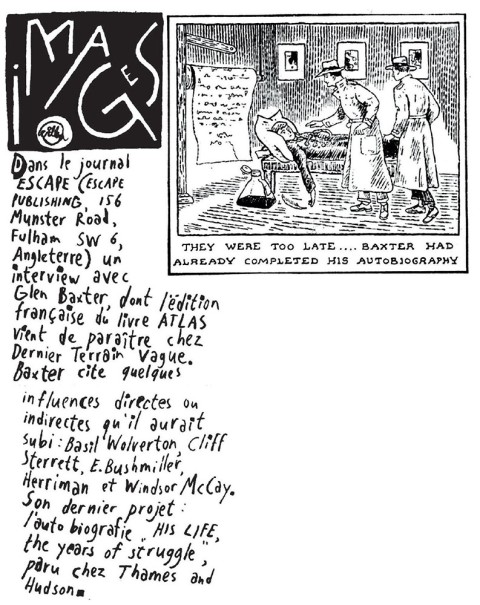 iMAGES
Dans le journal
ESCAPE (ESCAPE
PUBLISHING, 156
Munster Road,
Fulham SW 6,
Angleterre) un
interview avec
Glen Baxter, dont l'édition
française du livre ATLAS
vient de paraître chez
Dernier Terrain Vague.
Baxter cite quelques
influences directes ou
indirectes qu'il aurait
subi : Basil Wolverton, Cliff
Sterrett, E. Bushmiller,
Herriman et Windsor McCay.
Son dernier projet :
l'auto biografie „HIS LIFE,
the years of struggle",
paru chez Thames and
Hudson
THEY WERE TOO LATE.... BAXTER HAD
ALREADY COMPLETED HIS AUTOBIOGRAPHY